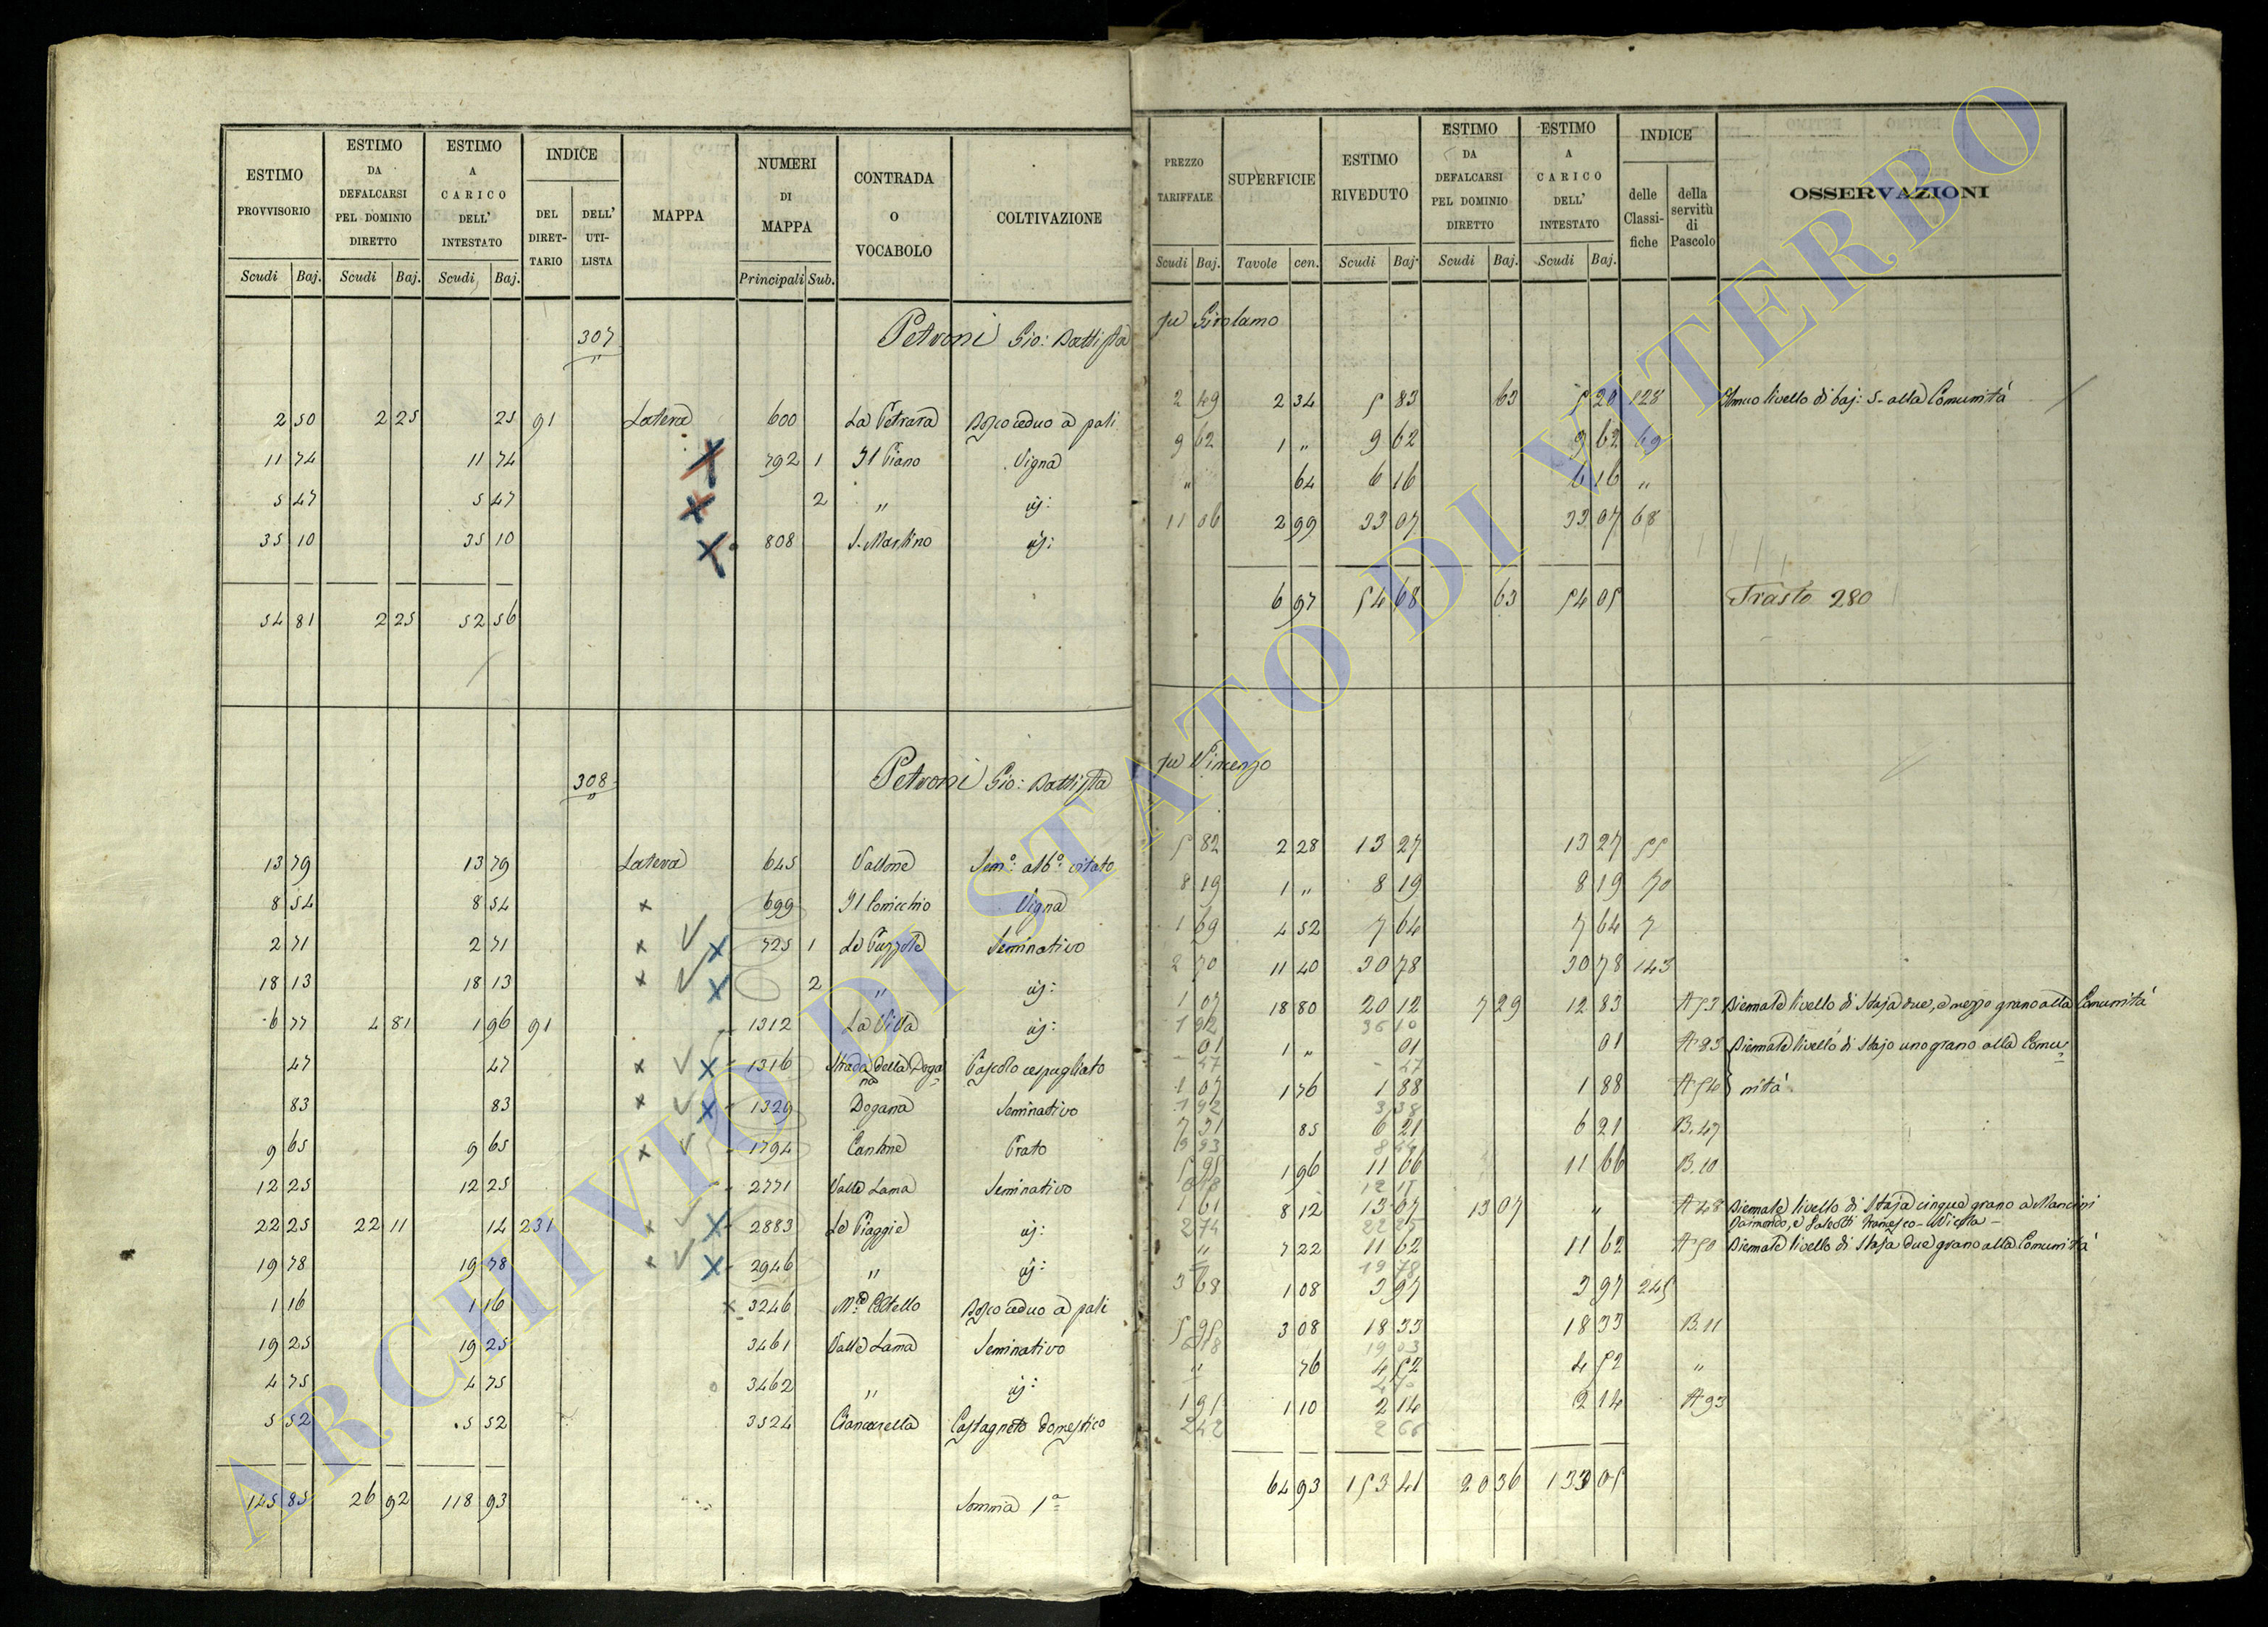 ESTIMO PROVVISORIO | ESTIMO DA DEFALCARSI PEL DOMINIO DIRETTO | ESTIMO A CARICO DELL' INTESTATO | INDICE DEL DIRETTARIO | DELL' UTILISTA | MAPPA | NUMERI DI MAPPA | CONTRADA O VOCABOLO | COLTIVAZIONE | PREZZO TARIFFALE | SUPERFICIE | ESTIMO RIVEDUTO | ESTIMO DA DEFALCARSI PEL DOMINIO DIRETTO | ESTIMO A CARICO DELL' INTESTATO | INDICE delle Classifiche | della servitù di Pascolo | OSSERVAZIONI
Scudi Baj. Scudi Baj. Scudi Baj. Principali Sub. Scudi Baj. Tavole cen. Scudi Baj. Scudi Baj. Scudi Baj.
307 Petroni Gio: Battista fu Girolamo
2 50 2 25 25 91 Latera 600 La Petrara Bosco ceduo a pali 2 49 2 34 5 83 63 5 20 128 Annuo livello di baj: 5 alla Comunità
11 74 11 74 792 1 Il Piano Vigna 9 62 1 " 9 62 9 62 69
5 47 5 47 2 " id: " 64 6 16 6 16 "
35 10 35 10 808 S. Martino id: 11 06 2 99 33 07 33 07 68
54 81 2 25 52 56 6 97 54 68 63 54 05 Trasto 280
308 Petroni Gio: Battista fu Vincenzo
13 79 13 79 Latera 645 Vallone Sem.o alb.o vitato 5 82 2 28 13 27 13 27 55
8 54 8 54 699 Il Cornicchio Vigna 8 19 1 " 8 19 8 19 70
2 71 2 71 725 1 Le Puzzole Seminativo 1 69 4 52 7 64 7 64 7
18 13 18 13 2 " id: 2 70 11 40 30 78 30 78 143
6 77 4 81 1 96 91 1312 La Villa id: 1 07 18 80 20 12 7 29 12 83 A 53 Biennale livello di Staja due, e mezzo grano alla Comunità
1 92 36 10
47 47 1316 Strada della Dogana Pascolo cespugliato 01 1 " 01 01 A 83 Biennale livello di Stajo uno grano alla Comu=
27 27
83 83 1329 Dogana Seminativo 1 07 1 76 1 88 1 88 A 54 nità
1 92 3 38
9 65 9 65 1794 Cantone Prato 7 31 85 6 21 6 21 B. 47
12 25 12 25 2771 Valle Lama Seminativo 5 95 1 96 11 66 11 66 B. 10
6 18 12 11
22 25 22 11 14 231 2883 Le Piaggie id: 1 61 8 12 13 07 13 07 " A 48 Biennale livello di Staja cinque grano a Mancini
Raimondo, e Galeotti Francesco
2 74 22 25
19 78 19 78 2946 " id: " 7 22 11 62 11 62 A 50 Biennale livello di Staja due grano alla Comunità
19 78
1 16 1 16 3246 Bosco ceduo a pali 3 68 1 08 3 97 3 97 245
19 25 19 25 3461 Valle Lama Seminativo 5 95 3 08 18 33 18 33 B. 11
6 18 19 03
4 75 4 75 3462 " id: " 76 4 52 4 52 "
5 52 5 52 3524 Ciancarella Castagneto domestico 1 95 1 10 2 14 2 14 A 93
2 42 2 66
145 85 26 92 118 93 Somma 1a 64 93 153 41 20 36 133 05
ARCHIVIO DI STATO DI VITERBO